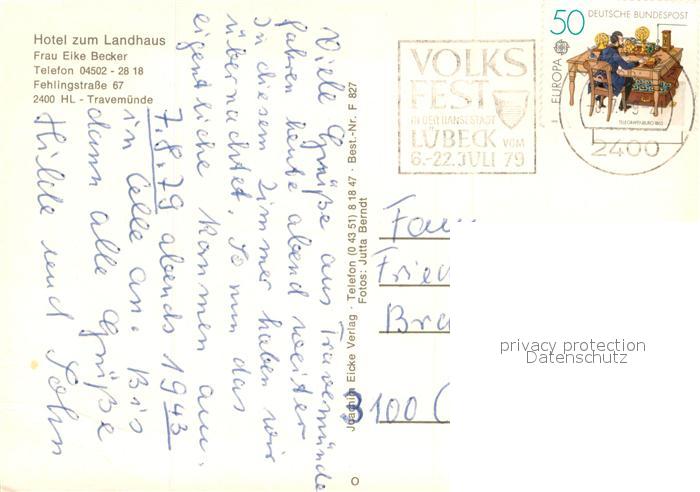 Hotel zum Landhaus
Frau Eike Becker
Telefon 04502 - 28 18
Fehlingstraße 67
2400 HL - Travemünde
Viele Grüße aus Travemünde
fahren heute abend weiter
In diesem Zimmer haben wir
übernachtet. So nun das
eigentliche kommen an.
7.8.79 abends 1943
in Celle an. Bis
dann alle Grüße
Hilde und Sohn
Joachim Eicke Verlag · Telefon (0 43 51) 8 18 47 · Best.-Nr. F 827
Fotos: Jutta Berndt
VOLKS
FEST
IN DER HANSESTADT
LÜBECK VOM
6.-22. JULI 79
50 DEUTSCHE BUNDESPOST
EUROPA
TELEGRAFENBÜRO 1863
2400
Fa
Frie
Bre
3100 C
privacy protection
Datenschutz